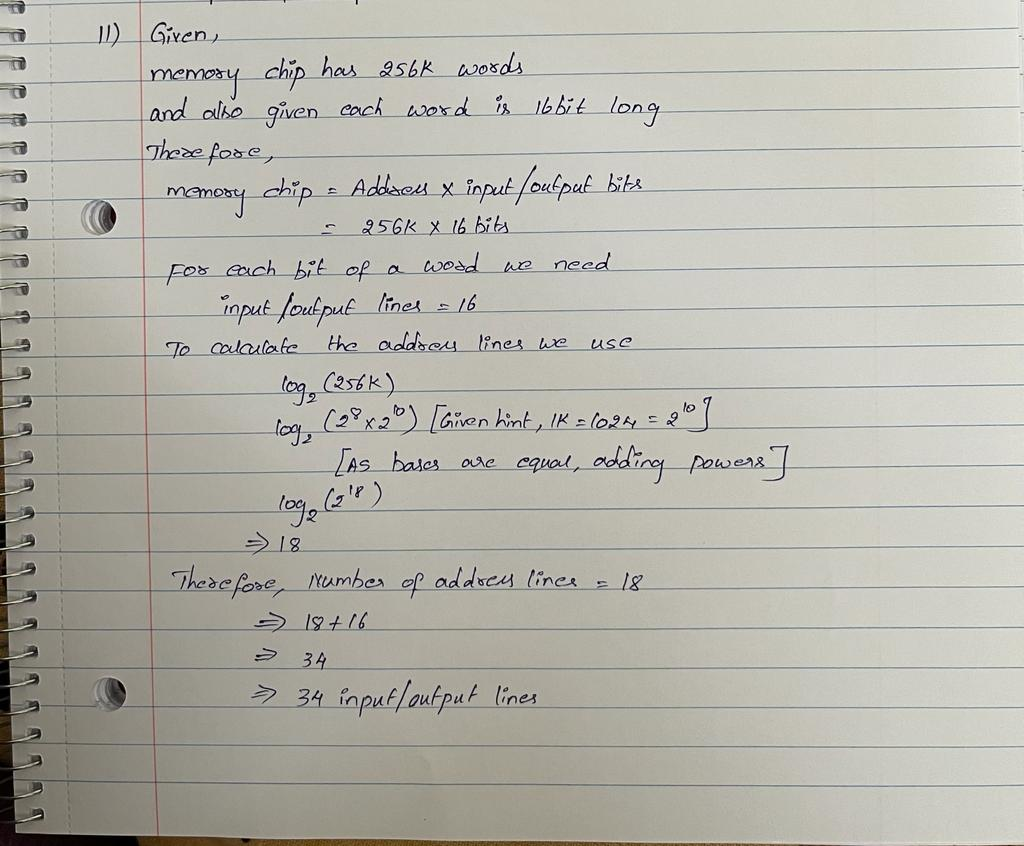 11) Given,
memory chip has 256K words
and also given each word is 16bit long
Therefore,
memory chip = Address x input/output bits
= 256K x 16 bits
For each bit of a word we need
input/output lines = 16
To calculate the address lines we use
log₂ (256K)
log₂ (2⁸ x 2¹⁰) [Given hint, 1K = 1024 = 2¹⁰]
[As bases are equal, adding powers]
log₂ (2¹⁸)
⇒ 18
Therefore, Number of address lines = 18
⇒ 18 + 16
⇒ 34
⇒ 34 input/output lines